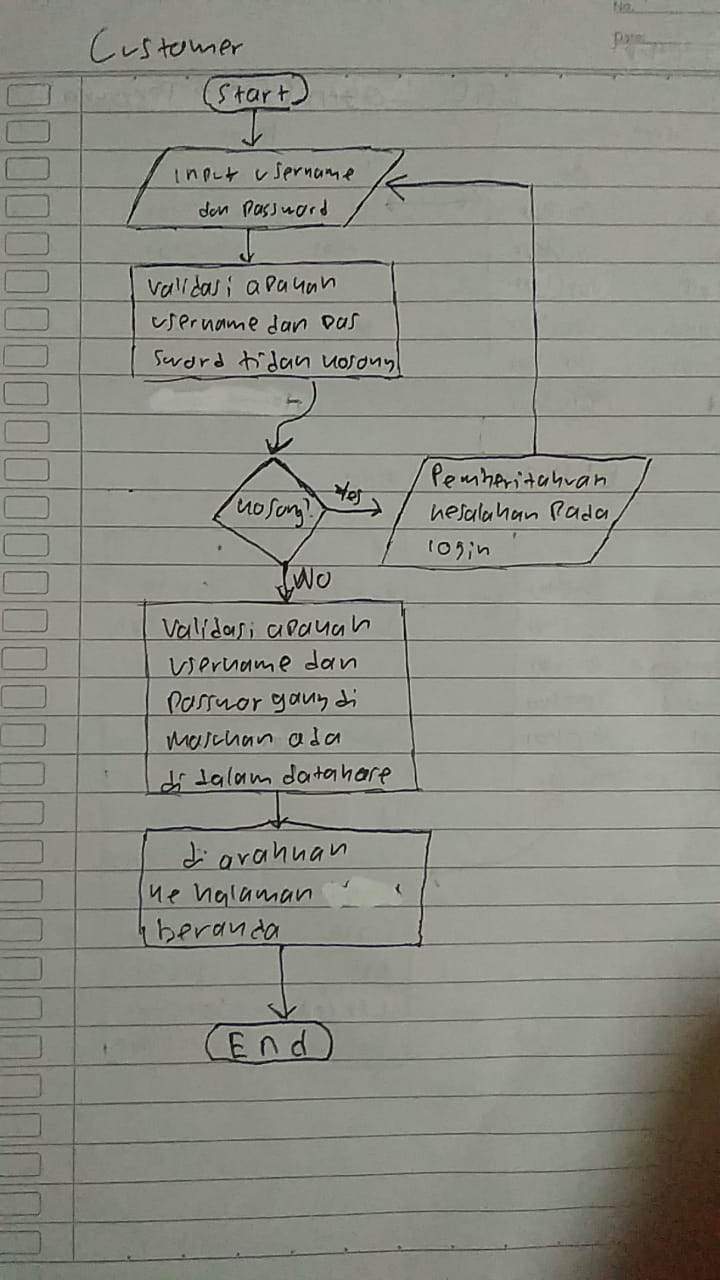 No.
Date
Customer
Start
input username
dan password
Validasi apakah
username dan pas
sword tidak kosong
kosong?
Yes
Pemberitahuan
kesalahan pada
login
No
Validasi apakah
username dan
passwor yang di
masukan ada
di dalam database
di arahkan
ke halaman
beranda
End